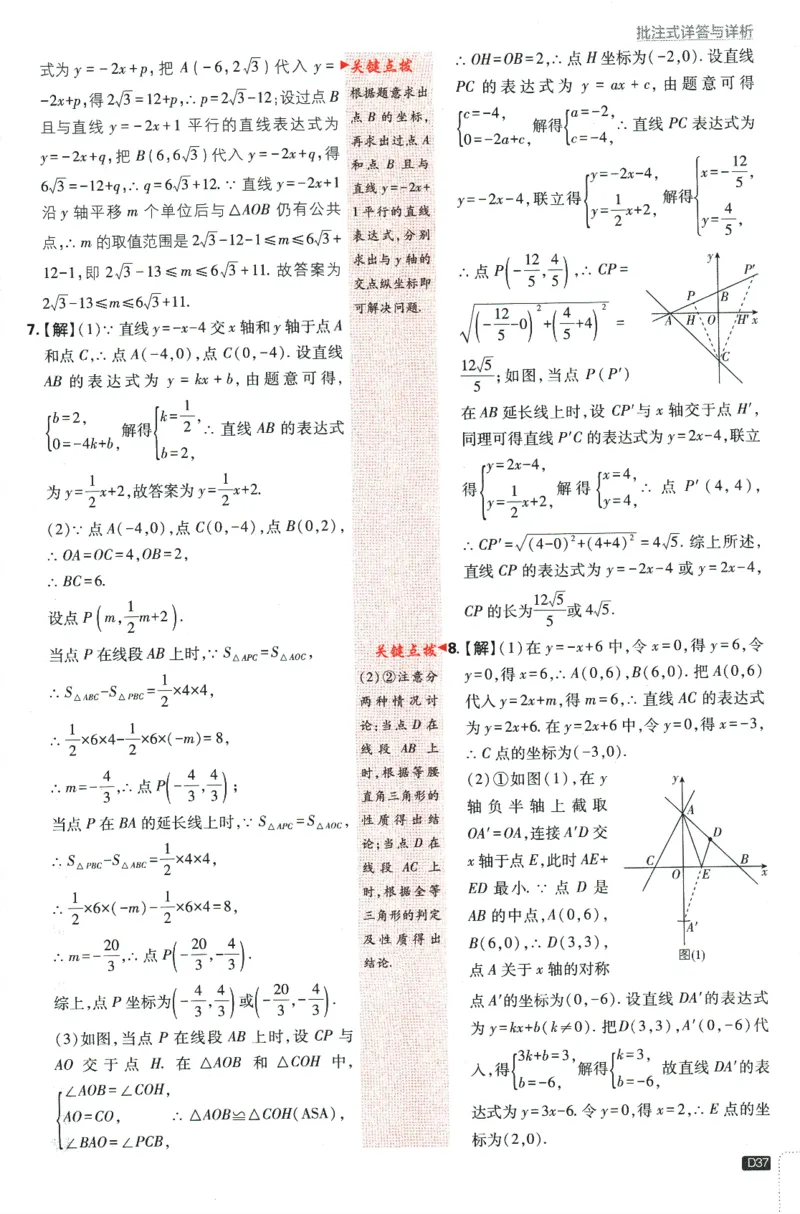 批注式详答与详析
式为 y=-2x+p, 把 A(-6,2√3) 代入 y=
-2x+p,得 2√3=12+p,∴ p=2√3-12;设过点 B
且与直线 y=-2x+1 平行的直线表达式为
y=-2x+q,把 B(6,6√3)代入 y=-2x+q,得
6√3=-12+q,∴ q=6√3+12. ∵ 直线 y=-2x+1
沿 y 轴平移 m 个单位后与△AOB 仍有公共
点,∴ m 的取值范围是 2√3-12-1≤m≤6√3+
12-1,即 2√3-13≤m≤6√3+11. 故答案为
2√3-13≤m≤6√3+11.
7.【解】(1)∵ 直线 y=-x-4 交 x 轴和 y 轴于点 A
和点 C,∴ 点 A(-4,0),点 C(0,-4). 设直线
AB 的表达式为 y=kx+b, 由题意可得,
{b=2, 0=-4k+b, 解得 {k=1/2, b=2, ∴ 直线 AB 的表达式
为 y=1/2x+2,故答案为 y=1/2x+2.
(2)∵ 点 A(-4,0),点 C(0,-4),点 B(0,2),
∴ OA=OC=4,OB=2,
∴ BC=6.
设点 P(m,1/2m+2).
当点 P 在线段 AB 上时,∵ S△APC=S△AOC,
∴ S△ABC-S△PBC=1/2×4×4,
∴ 1/2×6×4-1/2×6×(-m)=8,
∴ m=-4/3,∴ 点 P(-4/3,4/3);
当点 P 在 BA 的延长线上时,∵ S△APC=S△AOC,
∴ S△PBC-S△ABC=1/2×4×4,
∴ 1/2×6×(-m)-1/2×6×4=8,
∴ m=-20/3,∴ 点 P(-20/3,-4/3).
综上,点 P 坐标为(-4/3,4/3)或(-20/3,-4/3).
(3)如图,当点 P 在线段 AB 上时,设 CP 与
AO 交于点 H. 在 △AOB 和 △COH 中,
{∠AOB=∠COH,
AO=CO, ∴ △AOB≌△COH(ASA),
∠BAO=∠PCB,
▶关键点拨
根据题意求出
点 B 的坐标,
再求出过点 A
和点 B 且与
直线 y=-2x+
1 平行的直线
表达式,分别
求出与 y 轴的
交点纵坐标即
可解决问题.
关键点拨◀
(2)②注意分
两种情况讨
论:当点 D 在
线段 AB 上
时,根据等腰
直角三角形的
性质得出结
论;当点 D 在
线段 AC 上
时,根据全等
三角形的判定
及性质得出
结论.
∴ OH=OB=2,∴ 点 H 坐标为(-2,0). 设直线
PC 的表达式为 y=ax+c, 由题意可得
{c=-4, 0=-2a+c, 解得 {a=-2, c=-4, ∴ 直线 PC 表达式为
y=-2x-4,联立得 {y=-2x-4, y=1/2x+2, 解得 {x=-12/5, y=4/5,
∴ 点 P(-12/5,4/5),∴ CP=
√((-12/5-0)²+(4/5+4)²) =
12√5/5;如图,当点 P(P′)
y
P′
P
B
A
H
O
H′
x
C
在 AB 延长线上时,设 CP′与 x 轴交于点 H′,
同理可得直线 P′C 的表达式为 y=2x-4,联立
得 {y=2x-4, y=1/2x+2, 解得 {x=4, y=4, ∴ 点 P′(4,4),
∴ CP′=√((4-0)²+(4+4)²)=4√5. 综上所述,
直线 CP 的表达式为 y=-2x-4 或 y=2x-4,
CP 的长为 12√5/5 或 4√5.
8.【解】(1)在 y=-x+6 中,令 x=0,得 y=6,令
y=0,得 x=6,∴ A(0,6),B(6,0). 把 A(0,6)
代入 y=2x+m,得 m=6,∴ 直线 AC 的表达式
为 y=2x+6. 在 y=2x+6 中,令 y=0,得 x=-3,
∴ C 点的坐标为(-3,0).
(2)①如图(1),在 y
轴负半轴上截取
OA′=OA,连接 A′D 交
x 轴于点 E,此时 AE+
ED 最小. ∵ 点 D 是
AB 的中点,A(0,6),
B(6,0),∴ D(3,3),
点 A 关于 x 轴的对称
y
A
D
C
B
O
E
x
A′
图(1)
点 A′的坐标为(0,-6). 设直线 DA′的表达式
为 y=kx+b(k≠0). 把D(3,3),A′(0,-6)代
入,得 {3k+b=3, b=-6, 解得 {k=3, b=-6, 故直线 DA′的表
达式为 y=3x-6. 令 y=0,得 x=2,∴ E 点的坐
标为(2,0).
D37